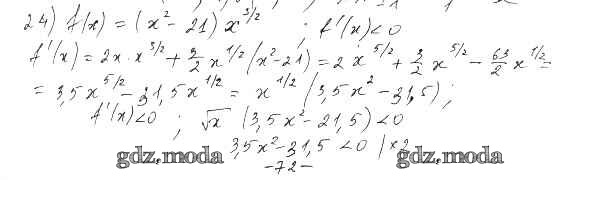 24) f(x) = (x² - 21) x^3/2 ; f'(x) < 0
f'(x) = 2x · x^3/2 + 3/2 x^1/2 (x² - 21) = 2 x^5/2 + 3/2 x^5/2 - 63/2 x^1/2 =
= 3,5x^5/2 - 31,5x^1/2 = x^1/2 (3,5x² - 31,5) ;
f'(x) < 0 ; √x (3,5x² - 21,5) < 0
3,5x² - 31,5 < 0 / × 2
gdz.moda gdz.moda
- 72 -